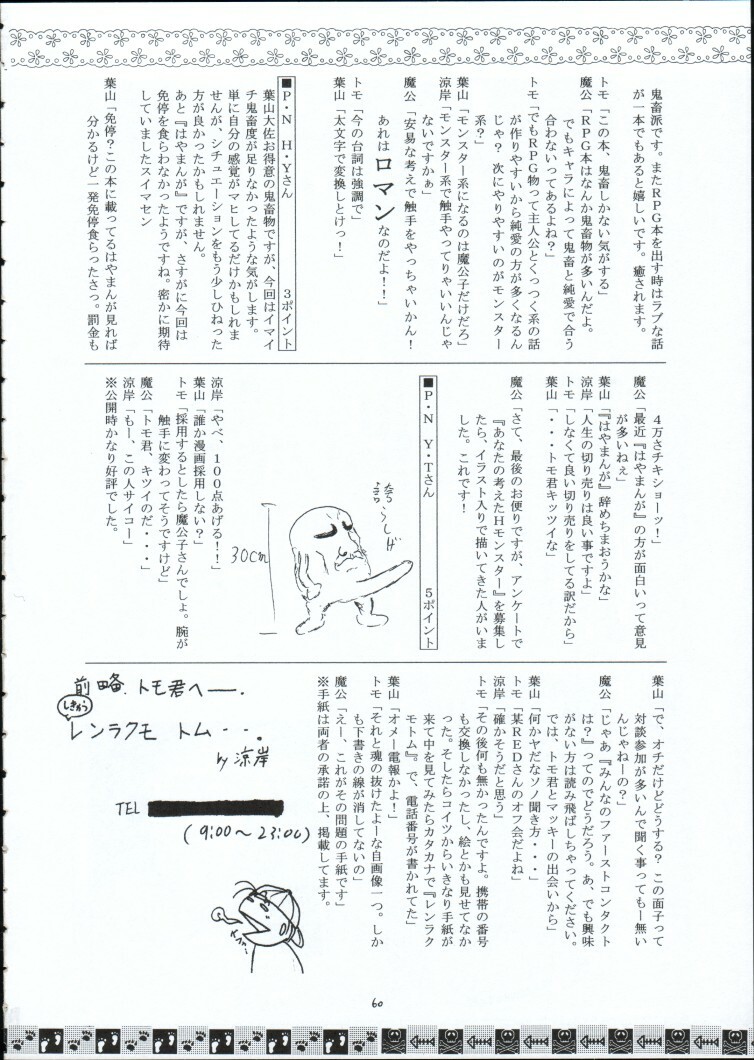 鬼畜派です。またRPG本を出す時はラブな話
が一本でもあると嬉しいです。癒されます。
トモ「この本、鬼畜しかない気がする」
魔公「RPG本はなんか鬼畜物が多いんだよ。
でもキャラによって鬼畜と純愛で合う
合わないってあるよね?」
トモ「でもRPG物って主人公とくっつく系の話
が作りやすいから純愛の方が多くなるん
じゃ?次にやりやすいのがモンスター
系?」
葉山「モンスター系になるのは魔公子だけだろ」
涼岸「モンスター系で触手やってりゃいいんじゃ
ないですかぁ」
魔公「安易な考えで触手をやっちゃいかん!
あれはロマンなのだよ!!」
トモ「今の台詞は強調で」
葉山「太文字で変換しとけっ!」
■P・N H・Yさん 3ポイント
葉山大佐お得意の鬼畜物ですが、今回はイマイ
チ鬼畜度が足りなかったような気がします。
単に自分の感覚がマヒしてるだけかもしれま
せんが、シチュエーションをもう少しひねった
方が良かったかもしれません。
あと『はやまんが』ですが、さすがに今回は
免停を食らわなかったようですね。密かに期待
していましたスイマセン
葉山「免停?この本に載ってるはやまんが見れば
分かるけど一発免停食らったさっ。罰金も
4万さチキショーッ!」
魔公「最近『はやまんが』の方が面白いって意見
が多いねぇ」
葉山「『はやまんが』辞めちまおうかな」
涼岸「人生の切り売りは良い事ですよ」
トモ「しなくて良い切り売りをしてる訳だから」
葉山「・・・トモ君キッツイな」
魔公「さて、最後のお便りですが、アンケートで
『あなたの考えたHモンスター』を募集し
たら、イラスト入りで描いてきた人がいま
した。これです!
■P・N Y・Tさん 5ポイント
誇らしげ
30cm
涼岸「やべ、100点あげる!!」
葉山「誰か漫画採用しない?」
トモ「採用するとしたら魔公子さんでしょ。腕が
触手に変わってそうですけど」
魔公「トモ君、キツイのだ・・・」
涼岸「もー、この人サイコー」
※公開時かなり好評でした。
葉山「で、オチだけどどうする?この面子って
対談参加が多いんで聞く事ってもー無い
んじゃねーの?」
魔公「じゃあ『みんなのファーストコンタクト
は?』ってのでどうだろう。あ、でも興味
がない方は読み飛ばしちゃってください。
では、トモ君とマッキーの出会いから」
葉山「何かヤだなソノ聞き方・・・」
トモ「某REDさんのオフ会だよね」
涼岸「確かそうだと思う」
トモ「その後何も無かったんですよ。携帯の番号
も交換しなかったし、絵とかも見せてなか
った。そしたらコイツからいきなり手紙が
来て中を見てみたらカタカナで『レンラク
モトム』。で、電話番号が書かれてた」
葉山「オメー電報かよ!」
トモ「それと魂の抜けたよーな自画像一つ。しか
も下書きの線が消してないの」
魔公「えー、これがその問題の手紙です」
※手紙は両者の承諾の上、掲載してます。
前略、トモ君へ――。
しきゅう
レンラクモトム・・・。
by 涼岸
TEL
(9:00〜23:00)
60